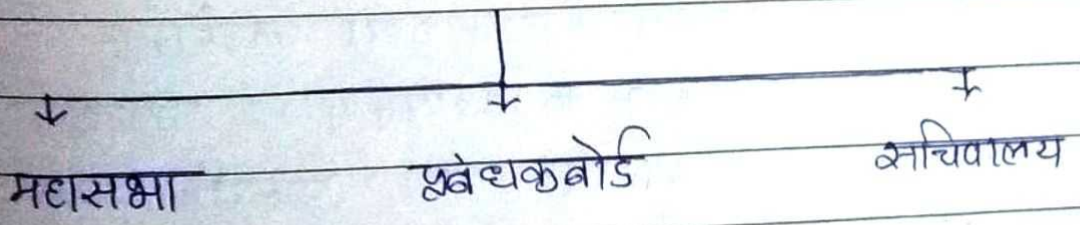 महासभा प्रबंधकबोर्ड सचिवालय